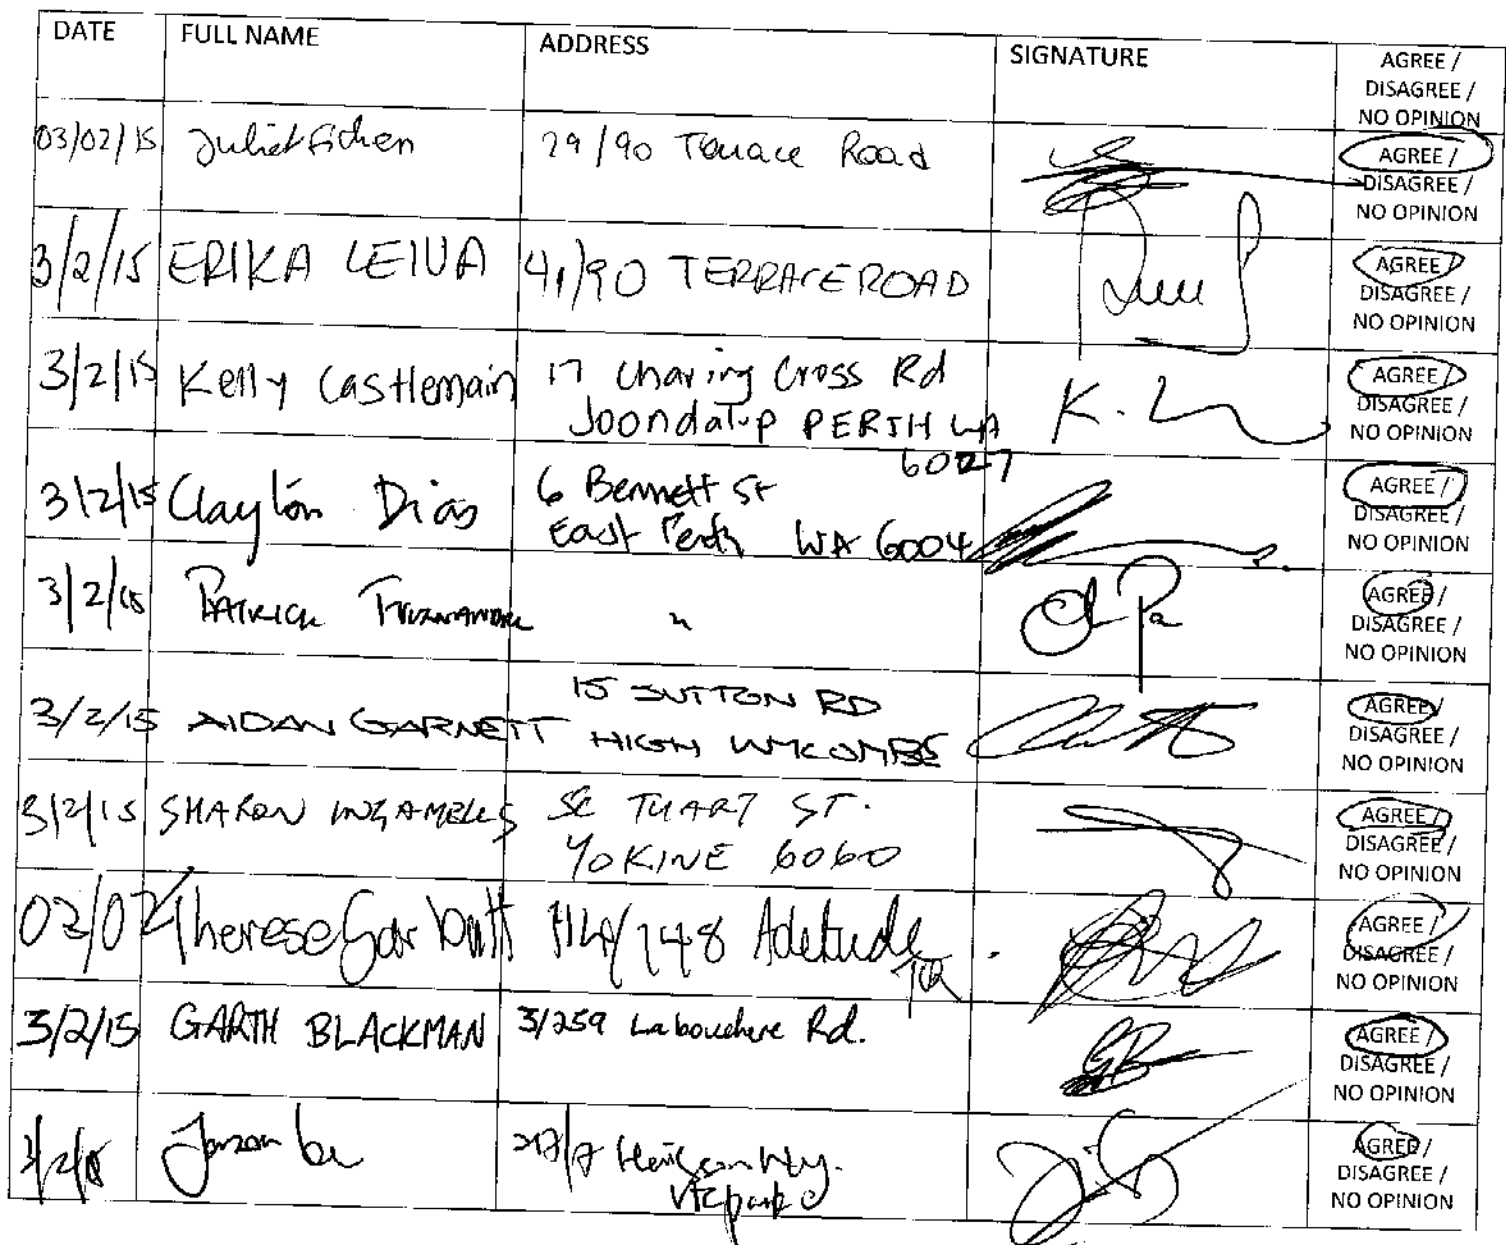 DATE FULL NAME ADDRESS SIGNATURE AGREE /
DISAGREE /
NO OPINION
03/02/15 Juliet 29/90 Terrace Road AGREE /
DISAGREE /
NO OPINION
3/2/15 ERIKA LEIVA 41/90 TERRACE ROAD AGREE /
DISAGREE /
NO OPINION
3/2/15 Kelly Castlemain 17 Charing Cross Rd K. AGREE /
Joondalup PERTH WA DISAGREE /
6027 NO OPINION
3/2/15 Clayton Dias 6 Bennett St AGREE /
East Perth WA 6004 DISAGREE /
NO OPINION
3/2/15 PATRICK " AGREE /
DISAGREE /
NO OPINION
3/2/15 AIDAN GARNETT 15 SUTTON RD AGREE /
HIGH WYCOMBE DISAGREE /
NO OPINION
3/2/15 SHARON INGAMELLS TUART ST. AGREE /
YOKINE 6060 DISAGREE /
NO OPINION
03/02/ Therese Garbutt /148 Adelaide AGREE /
Tce DISAGREE /
NO OPINION
3/2/15 GARTH BLACKMAN 3/259 Labouchere Rd. AGREE /
DISAGREE /
NO OPINION
3/2/15 AGREE /
Vic park DISAGREE /
NO OPINION